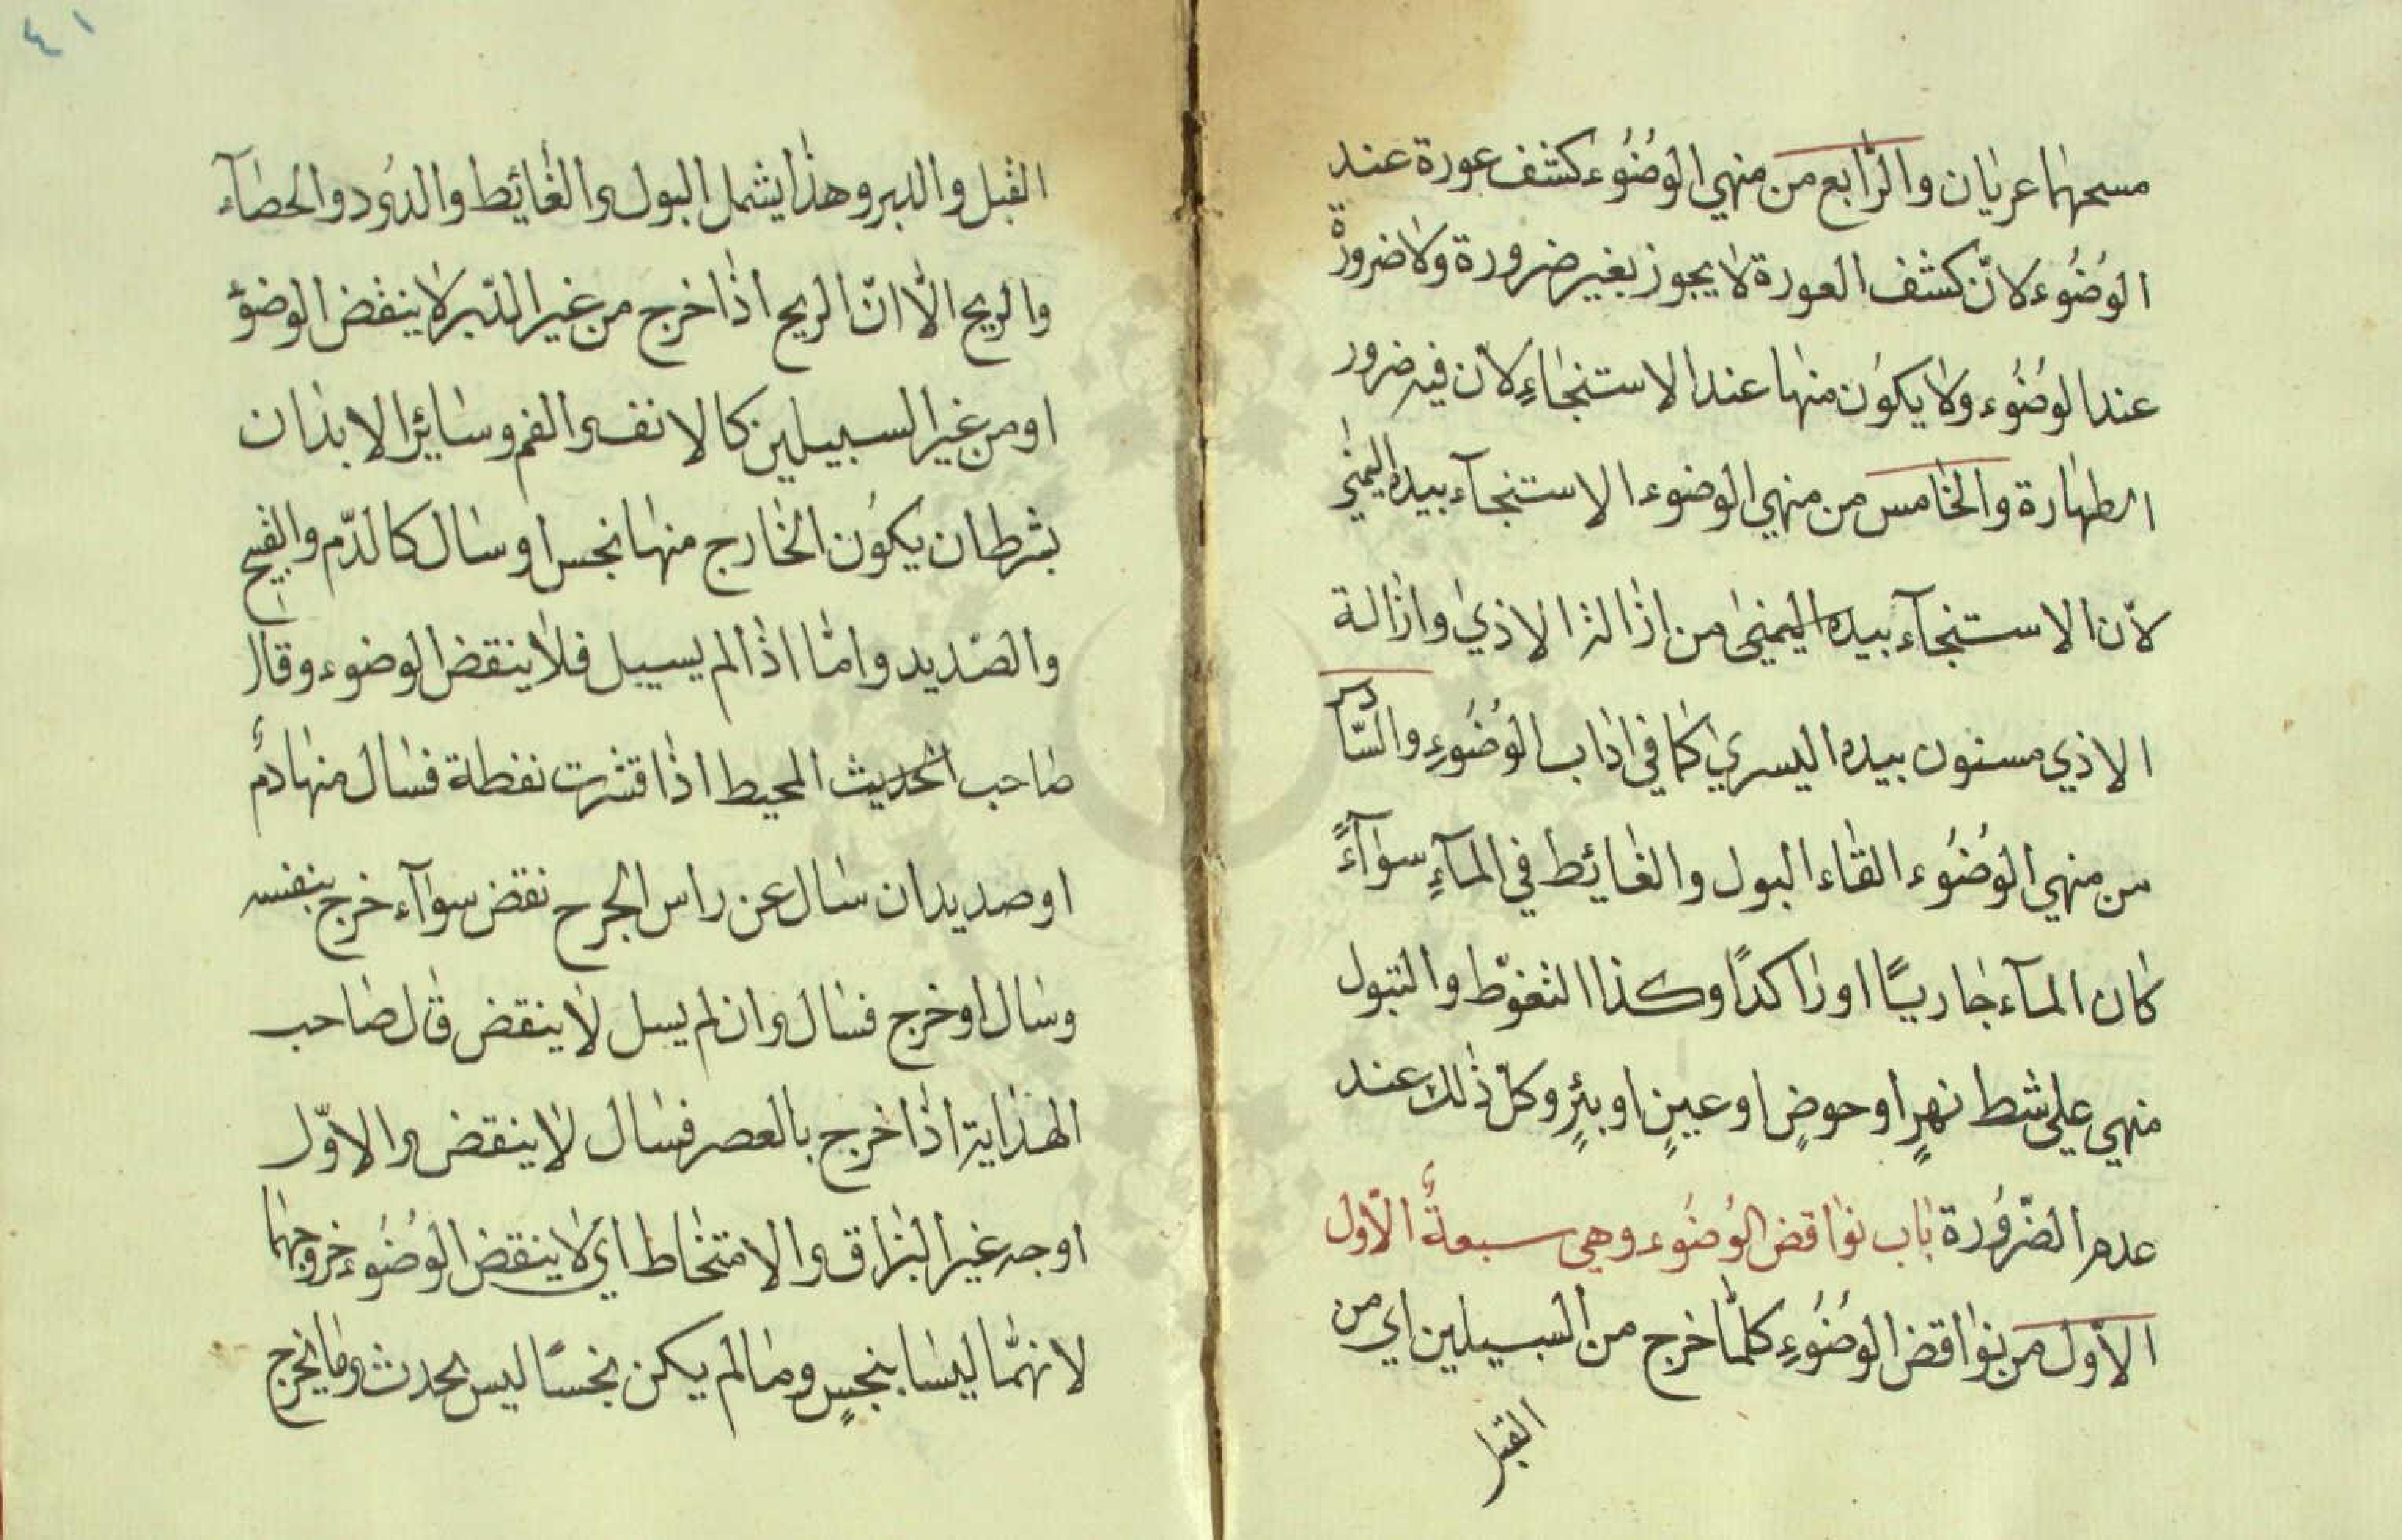 مسحهما عريان والرابع من منهي الوضُوء كشف عورة عند
الوضُوء لانّ كشف العورة لا يجوز بغير ضرورة ولا ضرورة
عند الوضُوء ولا يكون منها عند الاستنجاءِ لان فيه ضرور
الطهارة والخامس من منهي الوضوء الاستنجآء بيده اليمني
لانّ الاستنجآء بيده اليمنى من ازالة الاذي وازالة
الاذي مسنون بيده اليسري كما في اداب الوضُوءِ والسّادس
من منهي الوضُوء القاء البول والغايئط في المآءِ سوآءً
كان المآء جاريًا او راكدًا وكذا التغوّط والتبول
منهي على شط نهرٍ او حوضٍ او عينٍ او بئرٍ وكل ذلك عند
عدم الضّرورة باب نواقض الوُضُوء وهي سبعةٌ الاوّل
الاوّل من نواقض الوضُوءِ كلمّا خرج من السبيلين اي من
القبل
٤١
القبل والدبر وهذا يشمل البول والغايئط والدود والحصآء
والريح الّا انّ الريح اذا خرج من غير الدّبر لا ينقض الوضوء
او من غير السبيلين كالانف والفم وسايئر الابدان
بشرط ان يكون الخارج منها نجس او سال كالدّم والقيح
والصديد وامّا اذا لم يسيل فلا ينقض الوضوء وقال
صاحب الحديث المحيط اذا قشرت نفطة فسال منها دمٌ
او صديد ان سال عن راس الجرح نقض سوآء خرج بنفسه
وسال او خرج فسال وان لم يسل لا ينقض قال صاحب
الهداية اذا خرج بالعصر فسال لا ينقض والاوّل
اوجه غير البزاق والامتخاط اي لا ينقض الوضُوء خروجهما
لانهمّا ليسا بنجسٍ وما لم يكن نجسًا ليس بحدث وما يخرج